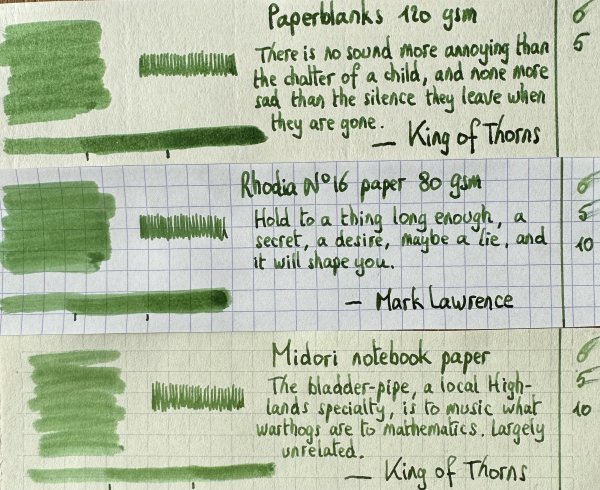 Paperblanks 120 gsm
There is no sound more annoying than
the chatter of a child, and none more
sad than the silence they leave when
they are gone.
— King of Thorns
0
5
Rhodia N°16 paper 80 gsm
Hold to a thing long enough, a
secret, a desire, maybe a lie, and
it will shape you.
— Mark Lawrence
0
5
10
Midori notebook paper
The bladder-pipe, a local High-
lands specialty, is to music what
warthogs are to mathematics. Largely
unrelated.
— King of Thorns
0
5
10